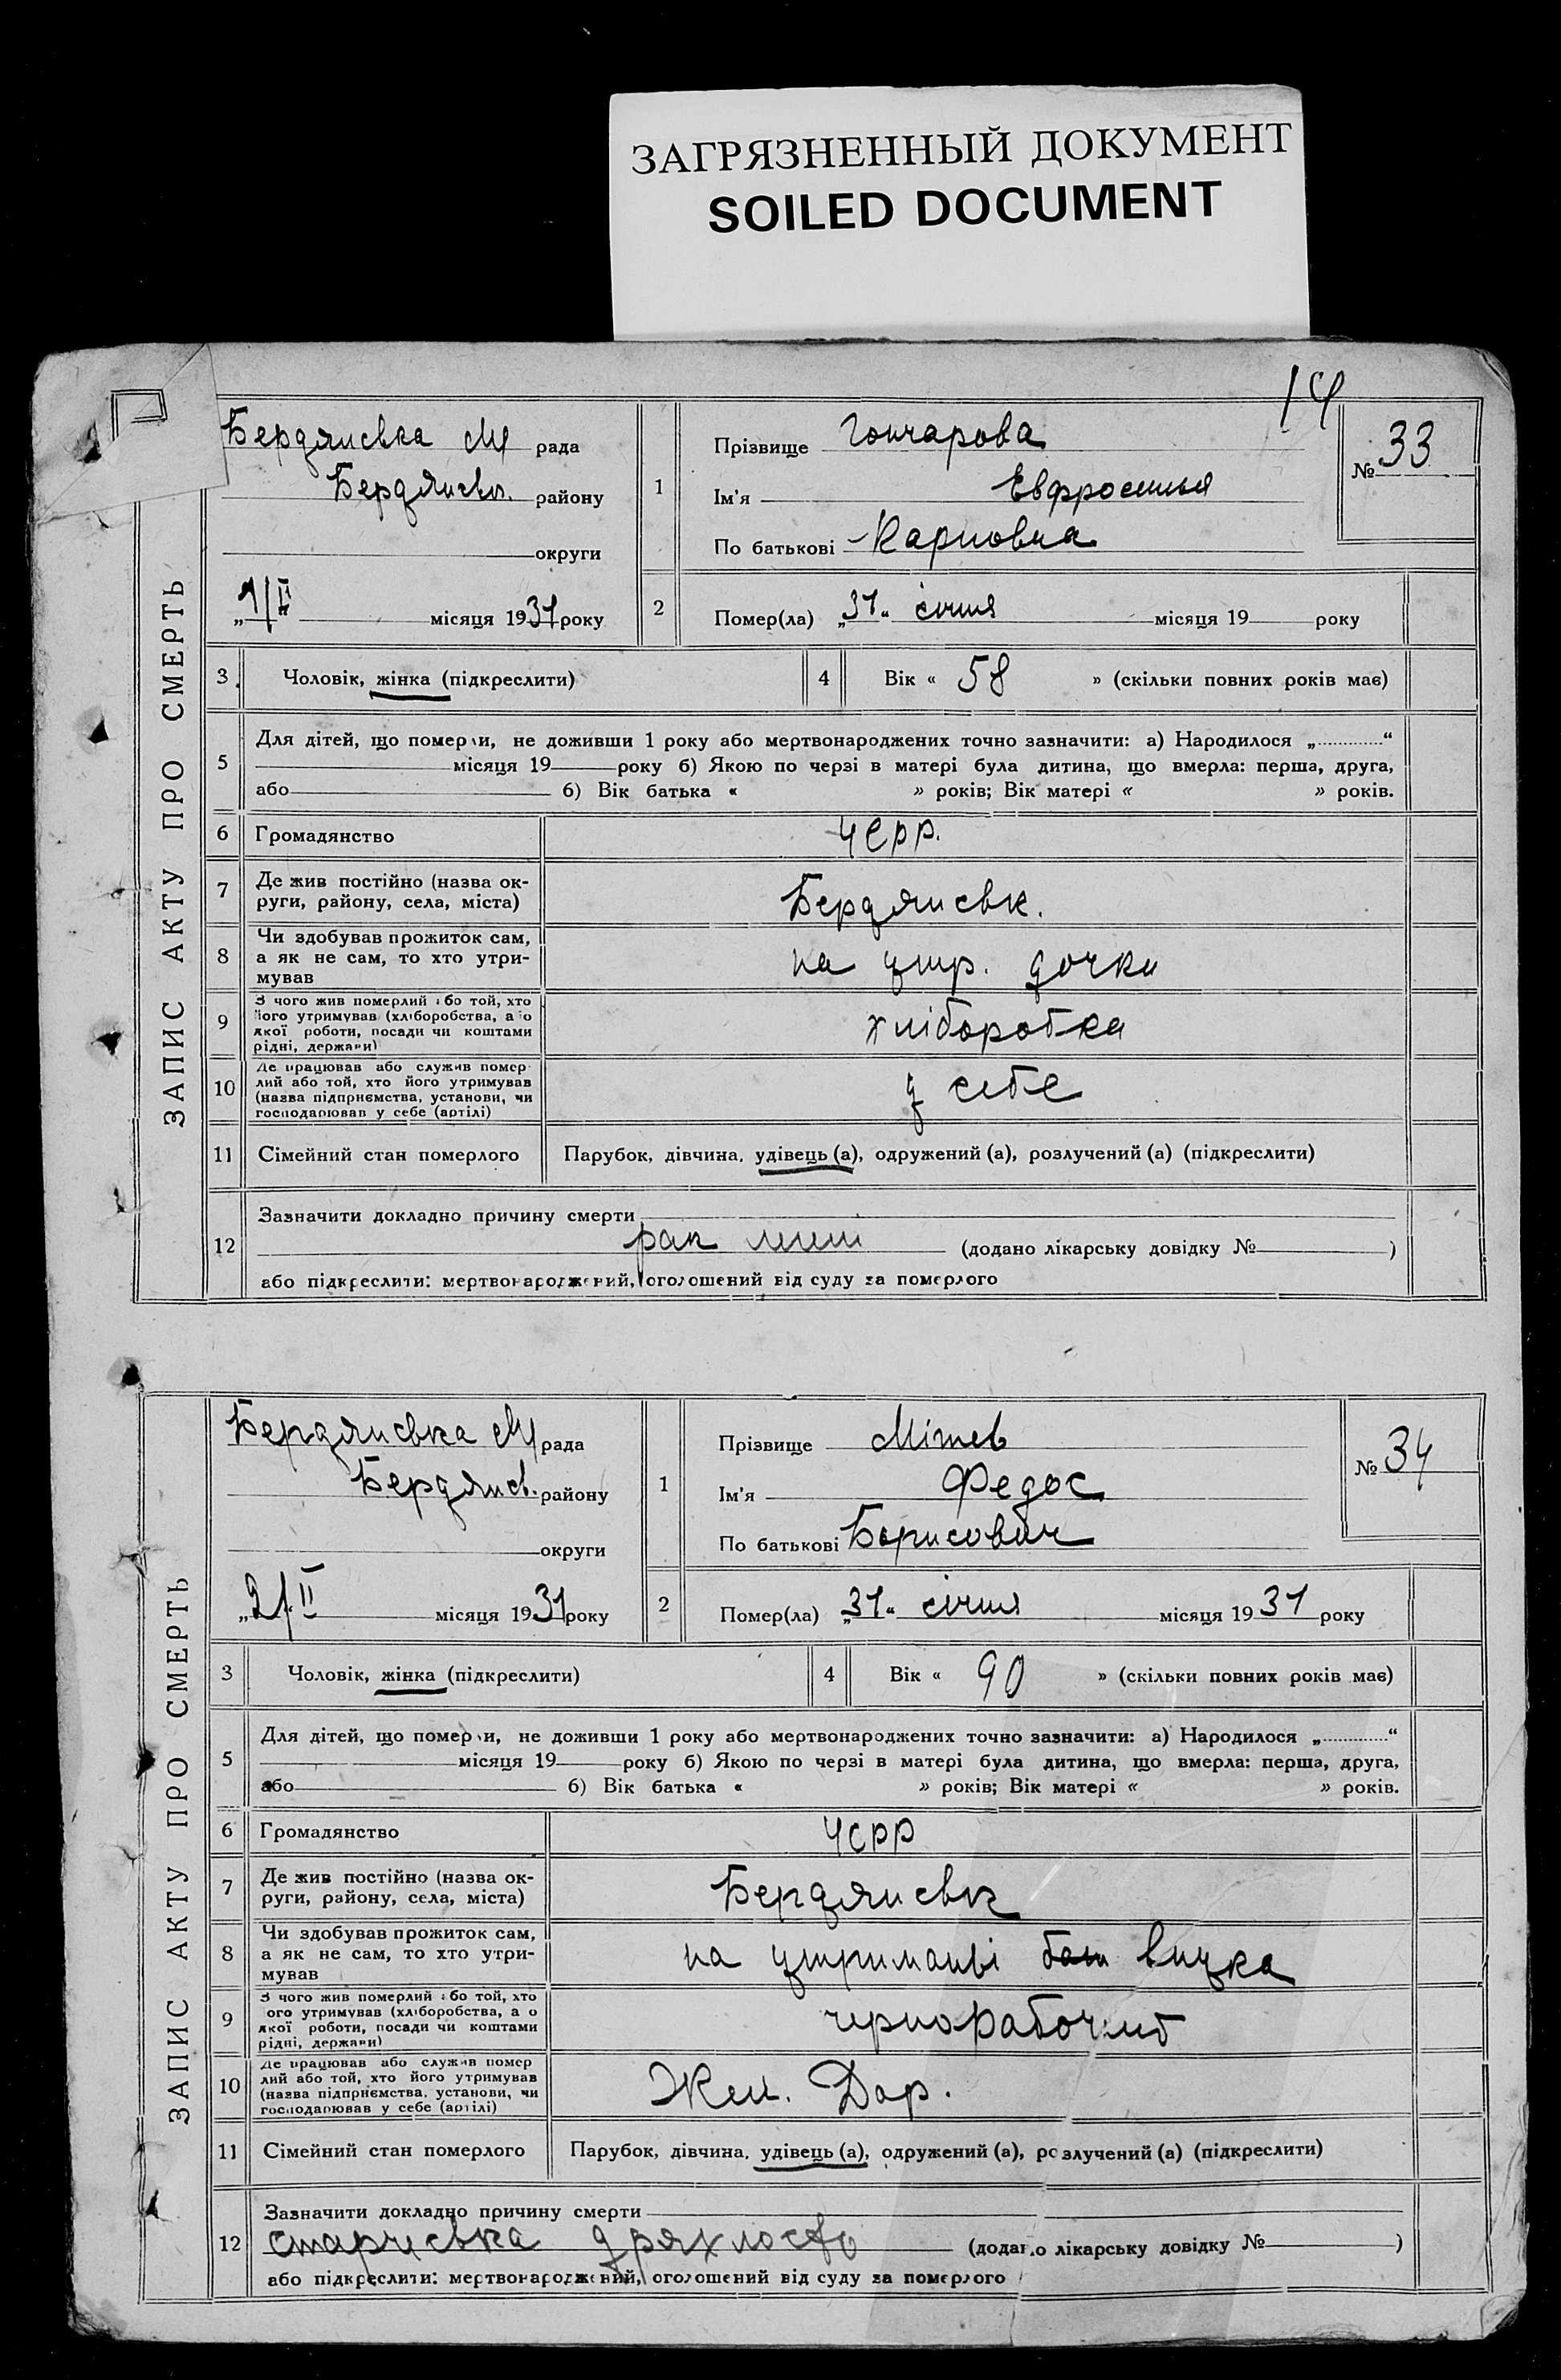 ЗАГРЯЗНЕННЫЙ ДОКУМЕНТ
SOILED DOCUMENT
14
ЗАПИС АКТУ ПРО СМЕРТЬ
Бердянська М рада
Бердянськ. району
округи
„1/II місяця 1931 року
1
Прізвище Гончарова
Ім'я Евфросинья
По батькові Карповна
№ 33
2
Помер(ла) „31“ січня місяця 19 року
3
Чоловік, жінка (підкреслити)
4
Вік « 58 » (скільки повних років має)
5
Для дітей, що померли, не доживши 1 року або мертвонароджених точно зазначити: а) Народилося „ “
місяця 19 року б) Якою по черзі в матері була дитина, що вмерла: перша, друга,
або б) Вік батька « » років; Вік матері « » років.
6
Громадянство
УСРР.
7
Де жив постійно (назва ок-
руги, району, села, міста)
Бердянськ.
8
Чи здобував прожиток сам,
а як не сам, то хто утри-
мував
на утр. дочки
9
З чого жив померлий або той, хто
його утримував (хліборобства, або
якої роботи, посади чи коштами
рідні, держави)
хліборобка
10
Де працював або служив помер
лий або той, хто його утримував
(назва підприємства, установи, чи
господарював у себе (артілі)
у себе
11
Сімейний стан померлого
Парубок, дівчина, удівець (а), одружений (а), розлучений (а) (підкреслити)
12
Зазначити докладно причину смерти
рак (додано лікарську довідку № )
або підкреслити: мертвонароджений, оголошений від суду за померлого
ЗАПИС АКТУ ПРО СМЕРТЬ
Бердянська М рада
Бердянс. району
округи
„2/II місяця 1931 року
1
Прізвище Мітев
Ім'я Федос
По батькові Борисович
№ 34
2
Помер(ла) „31“ січня місяця 1931 року
3
Чоловік, жінка (підкреслити)
4
Вік « 90 » (скільки повних років має)
5
Для дітей, що померли, не доживши 1 року або мертвонароджених точно зазначити: а) Народилося „ “
місяця 19 року б) Якою по черзі в матері була дитина, що вмерла: перша, друга,
або б) Вік батька « » років; Вік матері « » років.
6
Громадянство
УСРР
7
Де жив постійно (назва ок-
руги, району, села, міста)
Бердянськ
8
Чи здобував прожиток сам,
а як не сам, то хто утри-
мував
на утриманні внука
9
З чого жив померлий або той, хто
ого утримував (хліборобства, а о
якої роботи, посади чи коштами
рідні, держави)
чернорабочий
10
Де працював або служив помер
лий або той, хто його утримував
(назва підприємства, установи, чи
господарював у себе (артілі)
Жел. Дор.
11
Сімейний стан померлого
Парубок, дівчина, удівець (а), одружений (а), розлучений (а) (підкреслити)
12
Зазначити докладно причину смерти
старческа дряхлость (додано лікарську довідку № )
або підкреслити: мертвонароджений, оголошений від суду за померлого